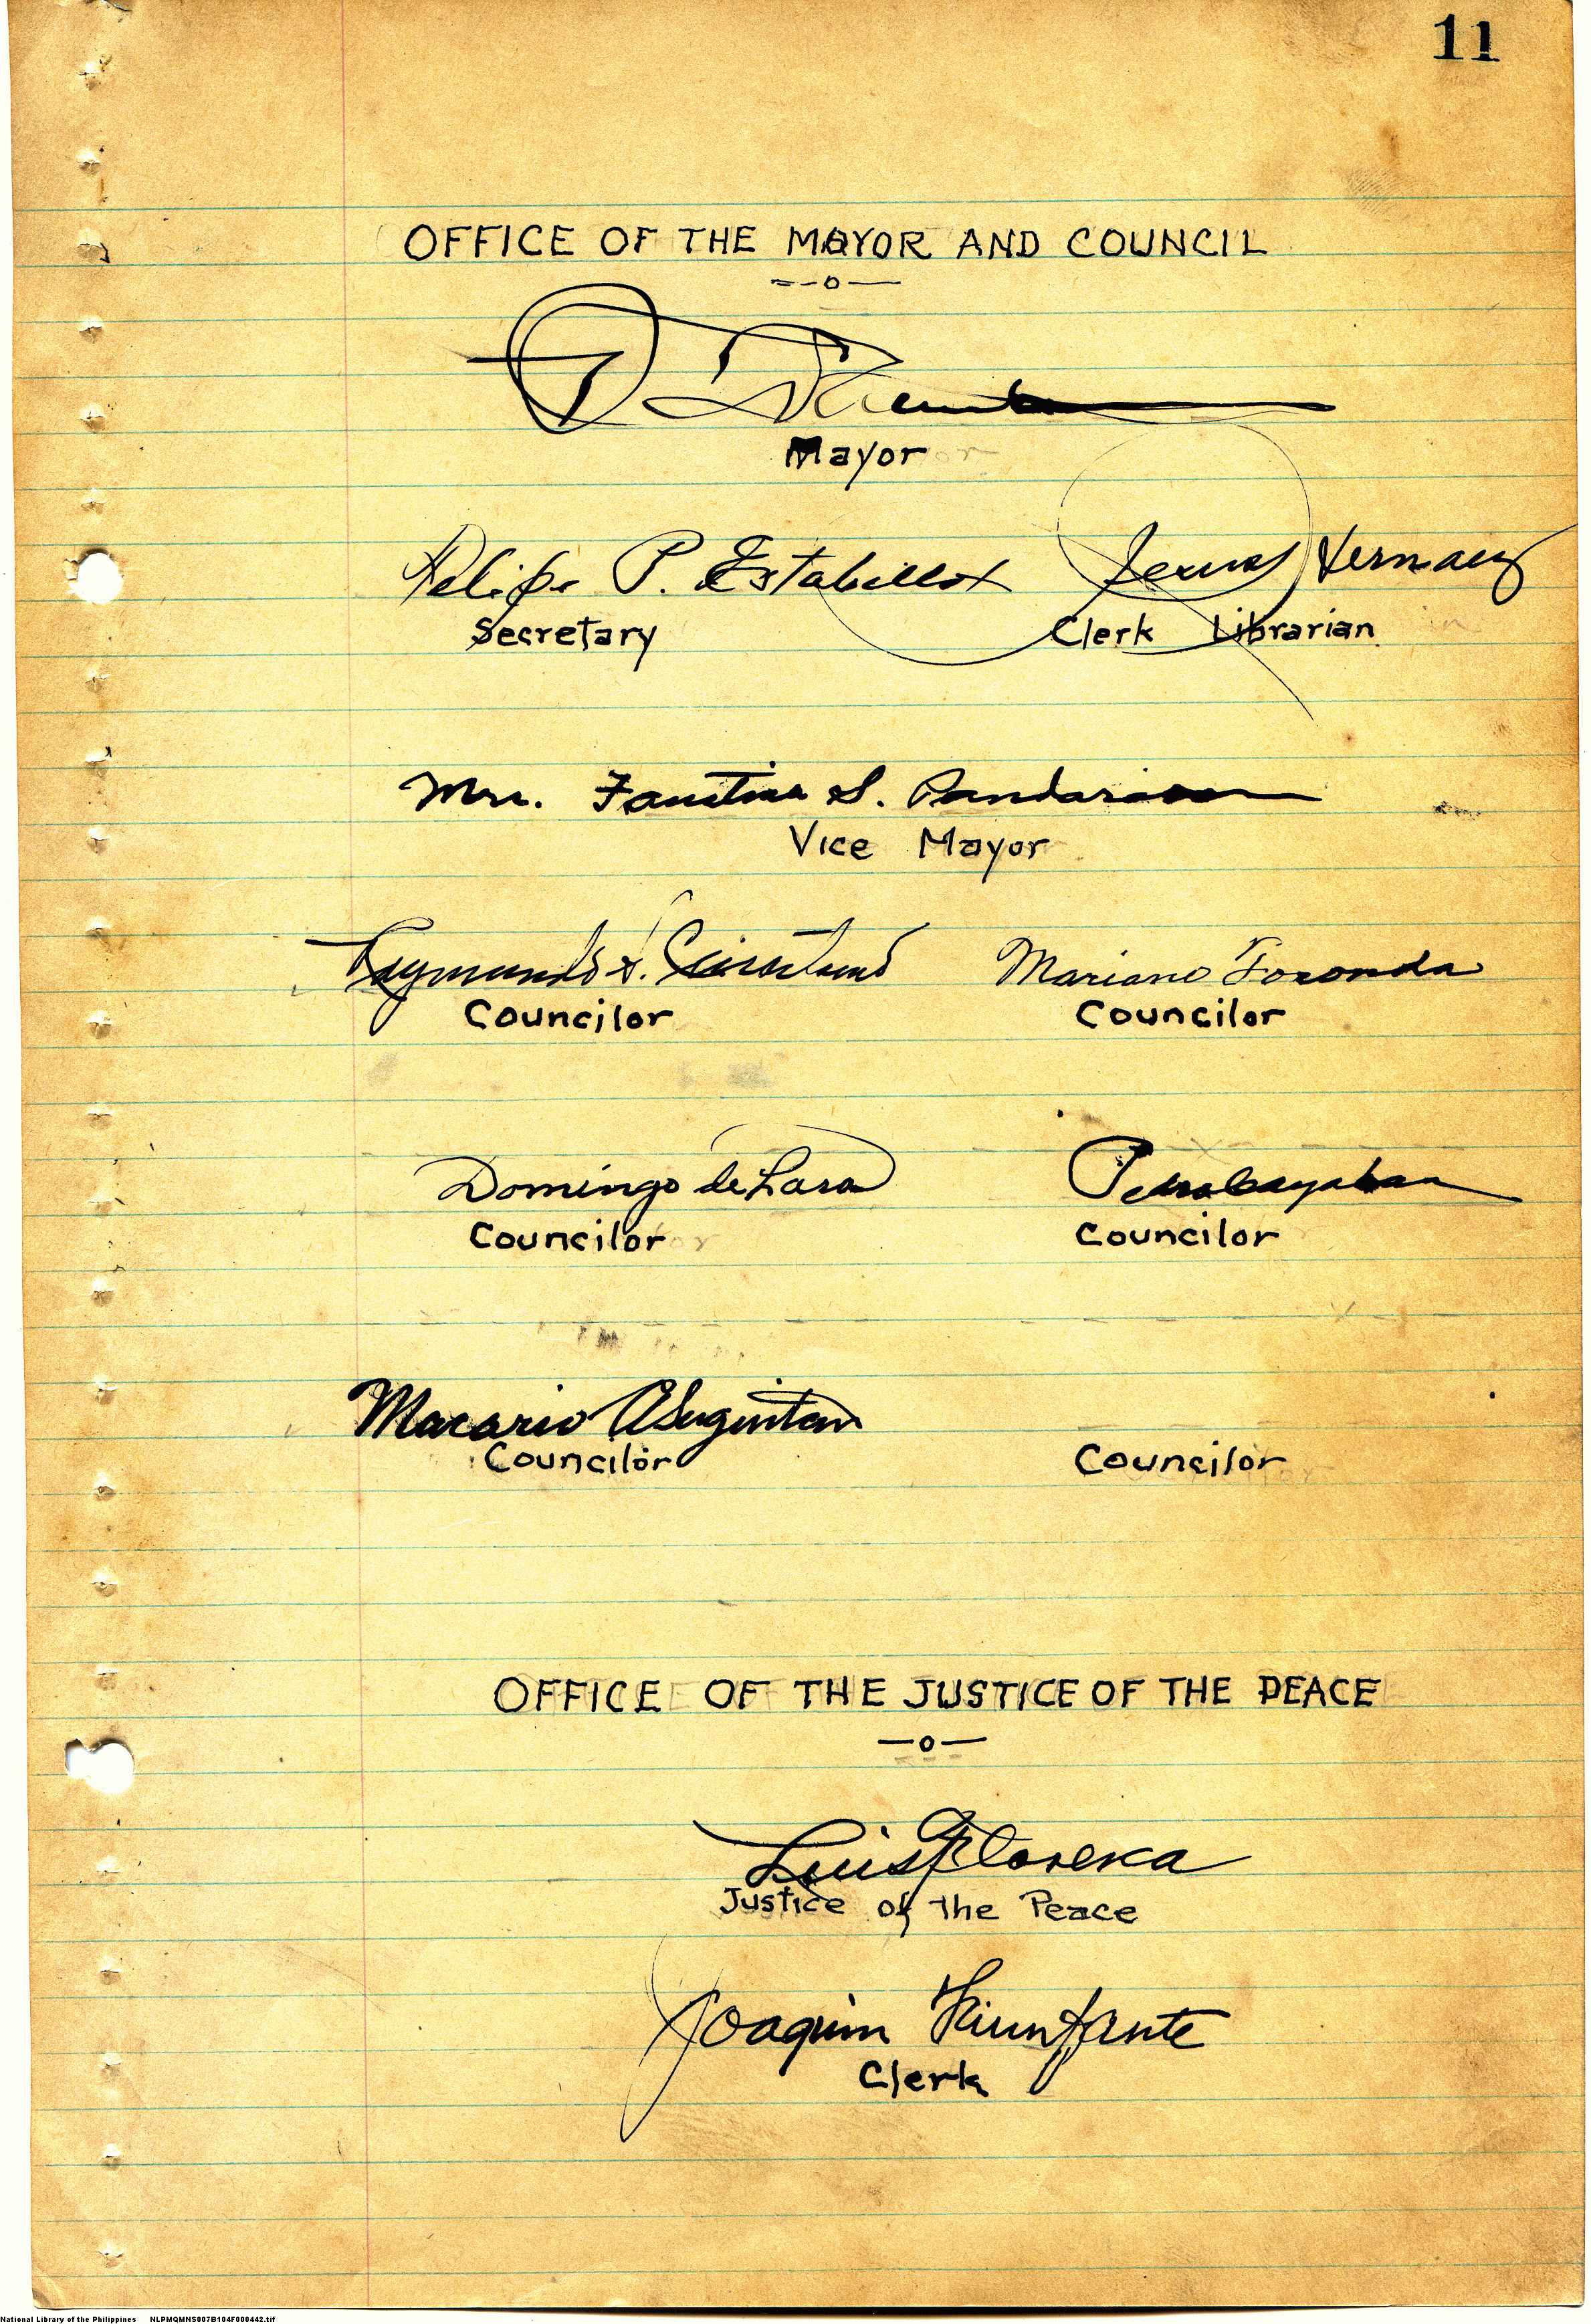 11
OFFICE OF THE MAYOR AND COUNCIL
Mayor
Felipe P. Estabillo
Secretary Clerk Librarian
Mrs. Faustina S. Pandaraoan
Vice Mayor
Raymundo Mariano Foronda
Councilor Councilor
Domingo de Lara
Councilor Councilor
Macario Asuguitan
Councilor Councilor
OFFICE OF THE JUSTICE OF THE PEACE
—o—
Luis Floresca
Justice of the Peace
Joaquin Triunfante
Clerk
National Library of the Philippines NLPMQMNS007B104F000442.tif